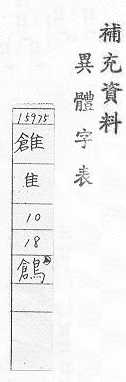 補充資料
異體字表
15975
雒
隹
10
18
鶬